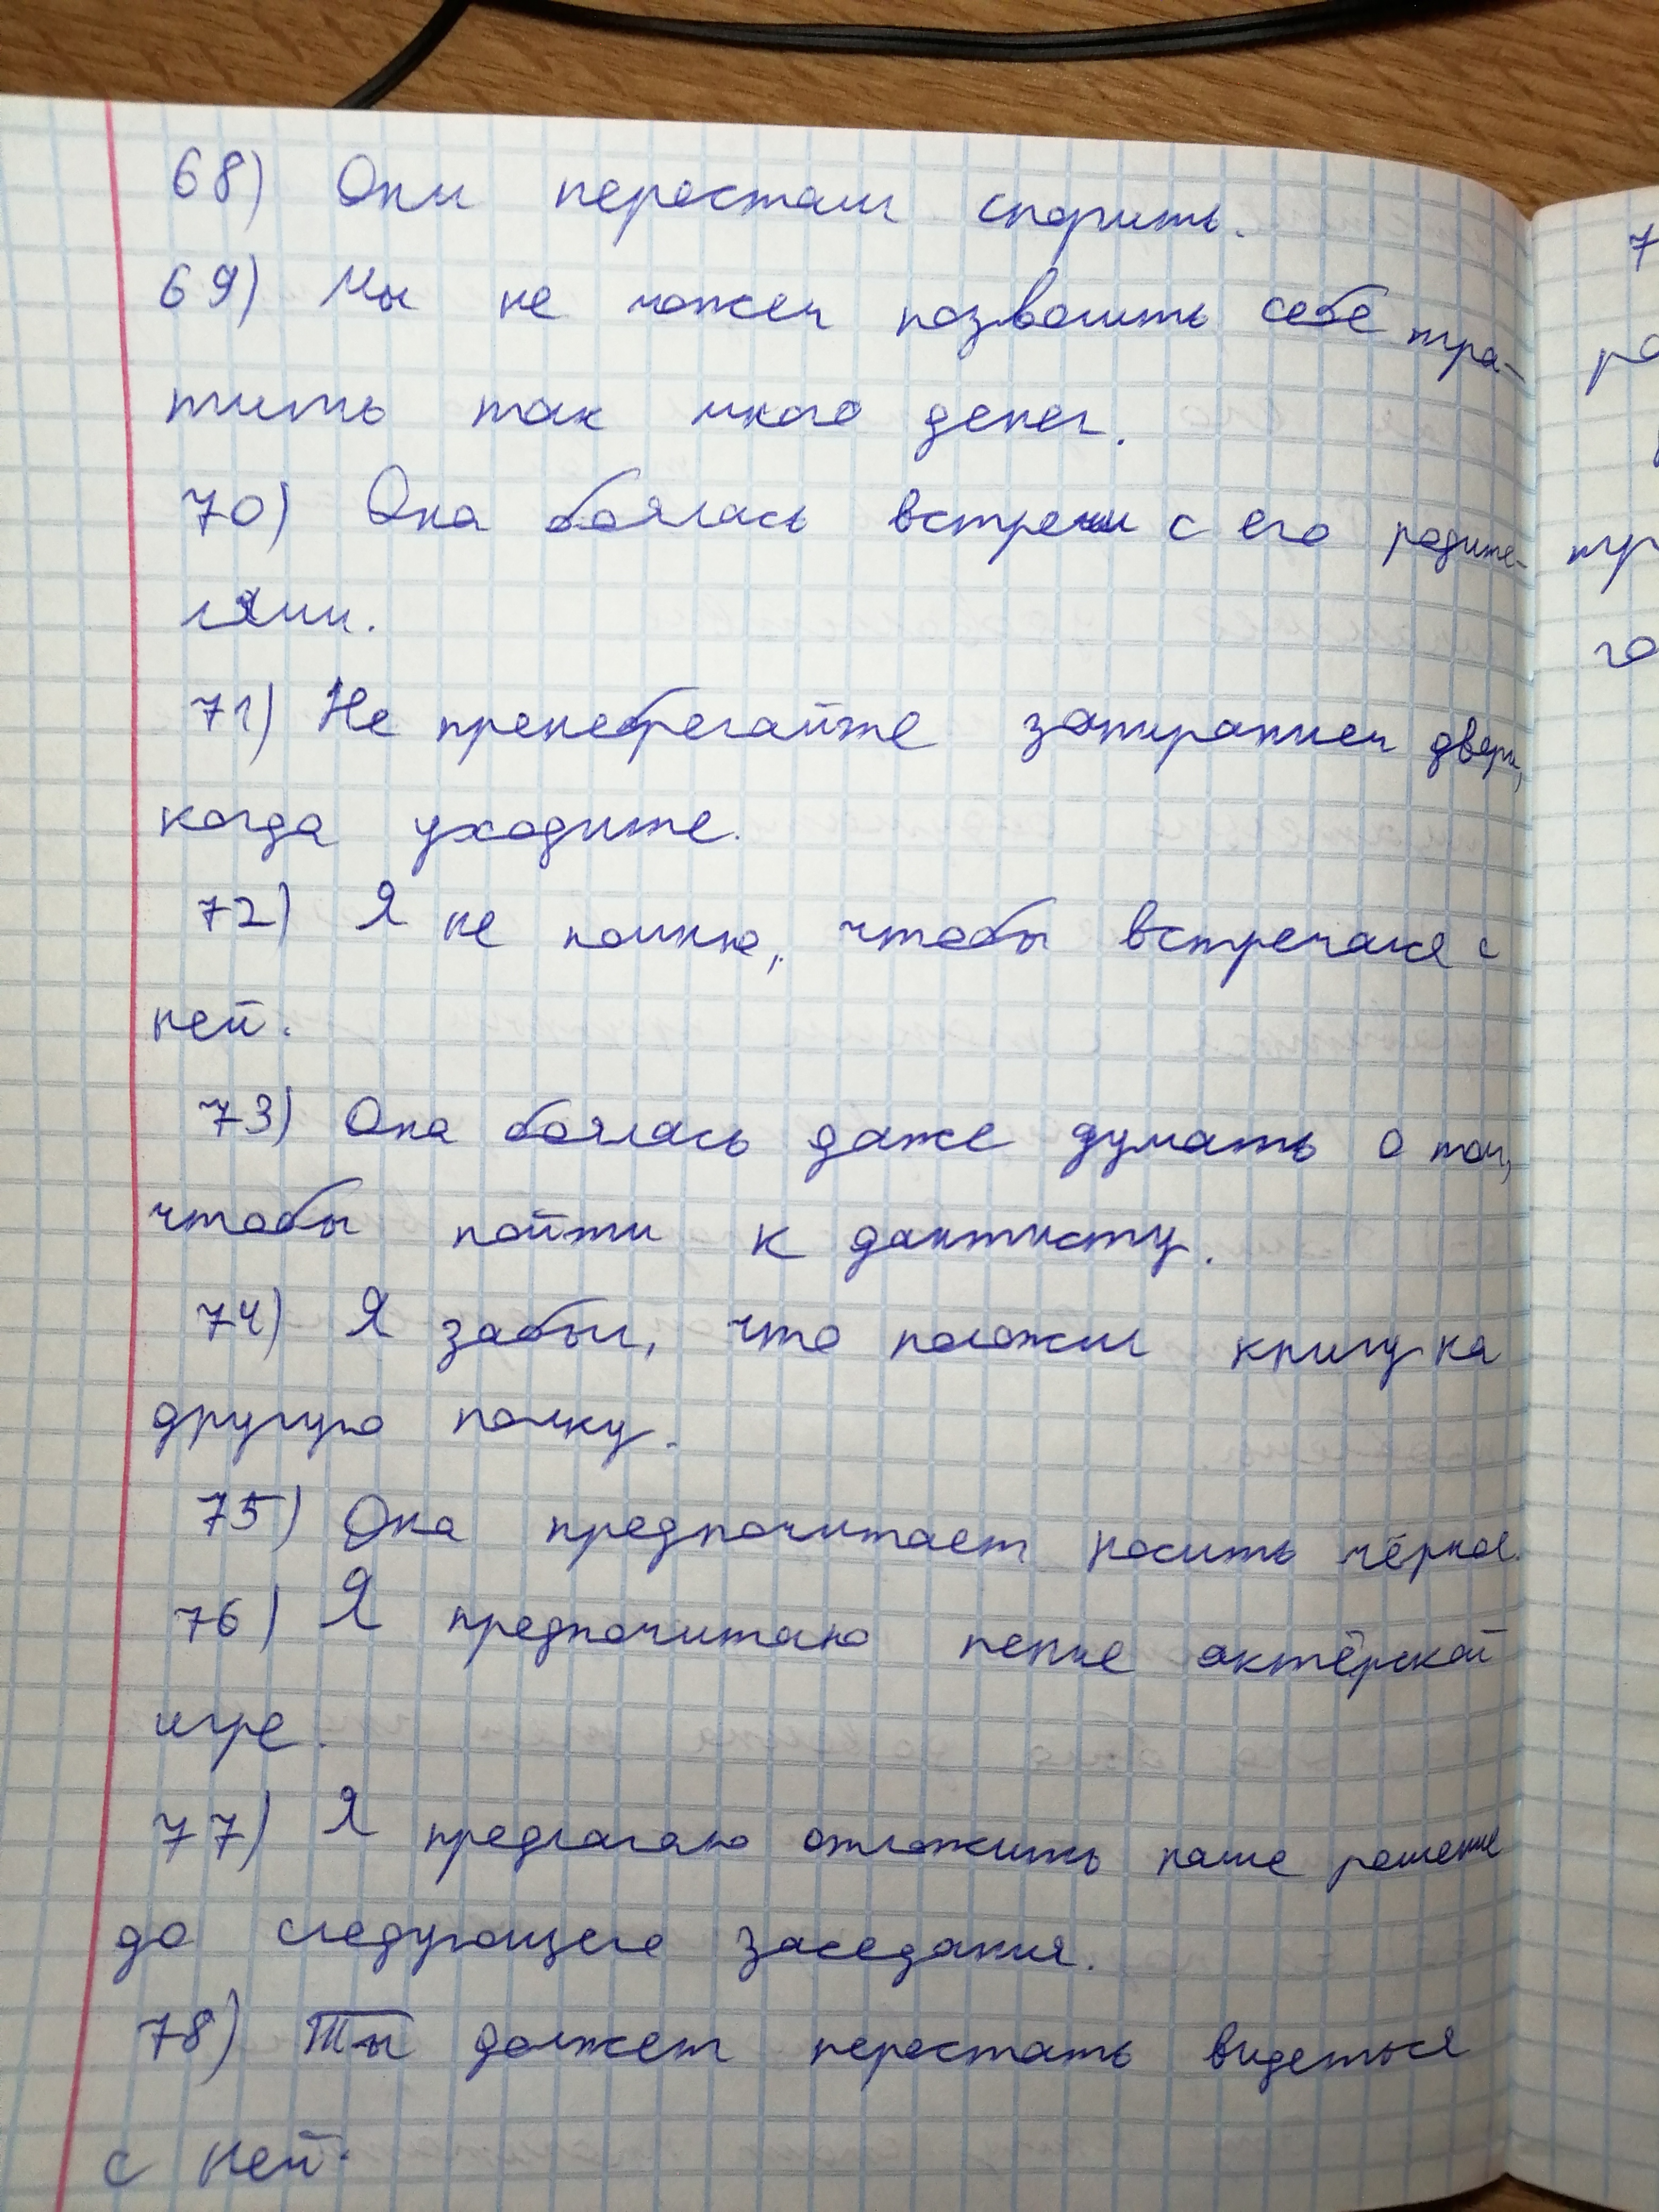 68) Они перестали спорить.
69) Мы не можем позволить себе тра-
тить так много денег.
70) Она боялась встречи с его родите-
лями.
71) Не пренебрегайте запиранием двери,
когда уходите.
72) Я не помню, чтобы встречался с
ней.
73) Она боялась даже думать о том,
чтобы пойти к дантисту.
74) Я забыл, что положил книгу на
другую полку.
75) Она предпочитает носить чёрное.
76) Я предпочитаю пение актёрской
игре.
77) Я предлагаю отложить наше решение
до следующего заседания.
78) Ты должен перестать видеться
с ней.